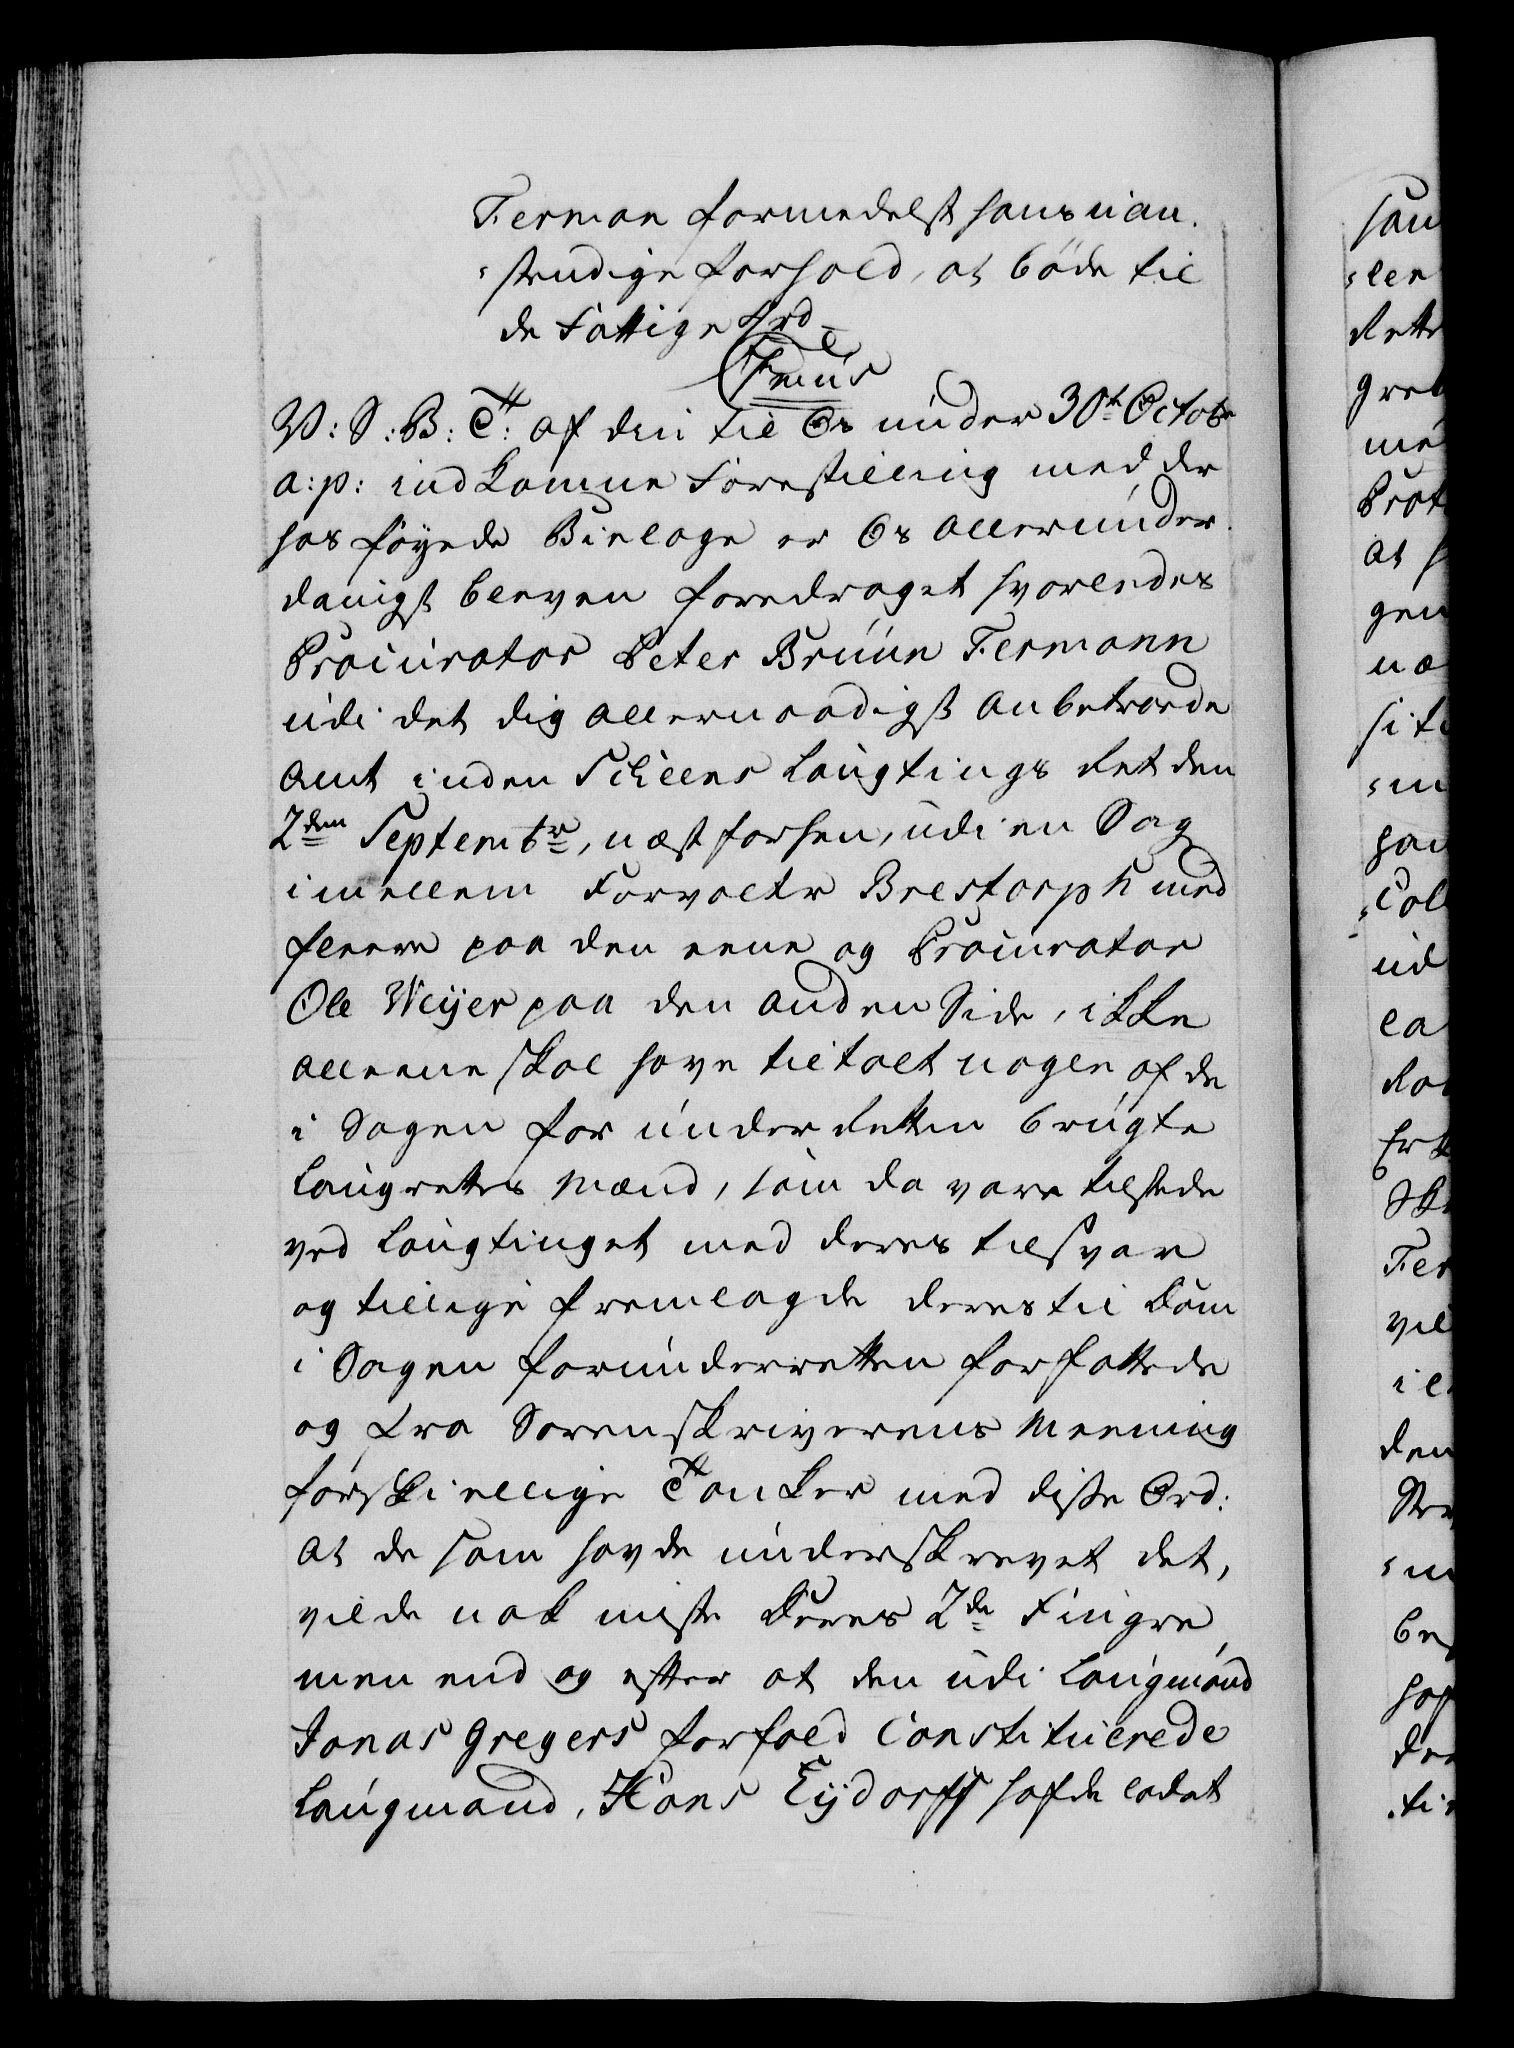 Ferman formedelst hans uan-
stendige forhold, at böde til
de Fattige
V: S: B: T: af din til Os under 30t Octobr
a: p: indkomne Forestilling med der
hos föyede Bielage er Os allerunder-
danigst bleven foredraget hvorledes
Procurator Peter Bruun Fermann
udi det dig allernaadigst anbetroede
Amt inden Scheens Laugtings Ret den
2den Septembr, næst forhen, udi en Sag
imellem Forvalter Brestorph med
fleere paa den eene og Procurator
Ole Weyer paa den anden Side, ikke
alleene skal have tiltalt nogle af de
i Sagen for under Retten brugte
Laugrettes Mænd, som da vare tilstede
ved Laugtinget med deres tilsvar
og tillige fremlagde deres til Dom
i Sagen for underretten forfattede
og fra Sorenskriverens Meening
forskiellige Tanker med disse Ord:
at de som havde underskrevet det,
vilde nok miste Deres 2de Fingre,
men end og efter at den udi Laugmand
Jonas Gregers forfald Constituerede
Laugmand, Hans Eydorff hafde ladet